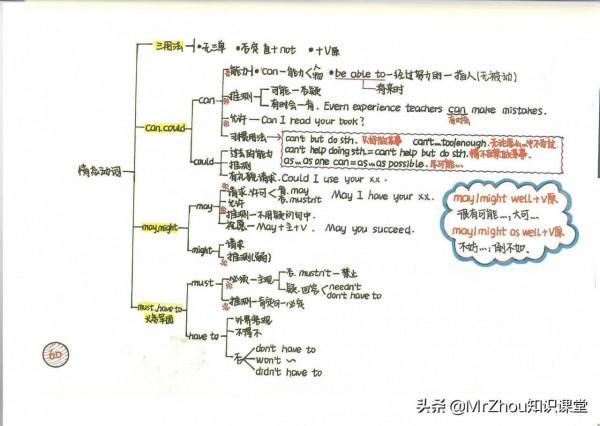 三用法 •无三单 •否疑自+not •+V原
情态动词
can.could
can
能力 •can-能力<人 物 •be able to-经过努力的-指人(无被动)
将来时
推测 可能-否疑
有时会-肯. Evern experience teachers can make mistakes.
有时会
允许-Can I read your book?
习惯用法
can't but do sth. 只好做某事 can't...too/enough.
can't help doing sth.=can't help but do sth. 情不自禁做某事.
as...as one can=as...as possible. 尽可能...
could
过去的能力
推测
有礼貌请求. Could I use your xx.
may.might
may
请求.许可 肯.may May I have your xx.
否.mustn't
允许
推测-不用疑问句中.
祝愿-May+主+V. May you succeed.
might
请求
推测(弱)
may/might well+V原
很有可能...,大可...
may/might as well+V原
不妨...;倒不如.
must.have to
义务.牵团
must
必须-主观 否.mustn't-禁止
疑.回答 needn't
don't have to
推测-肯定句-必定
have to
外界客观
不得不
否 don't have to
won't ~
didn't have to
60
头条 @MrZhou知识课堂